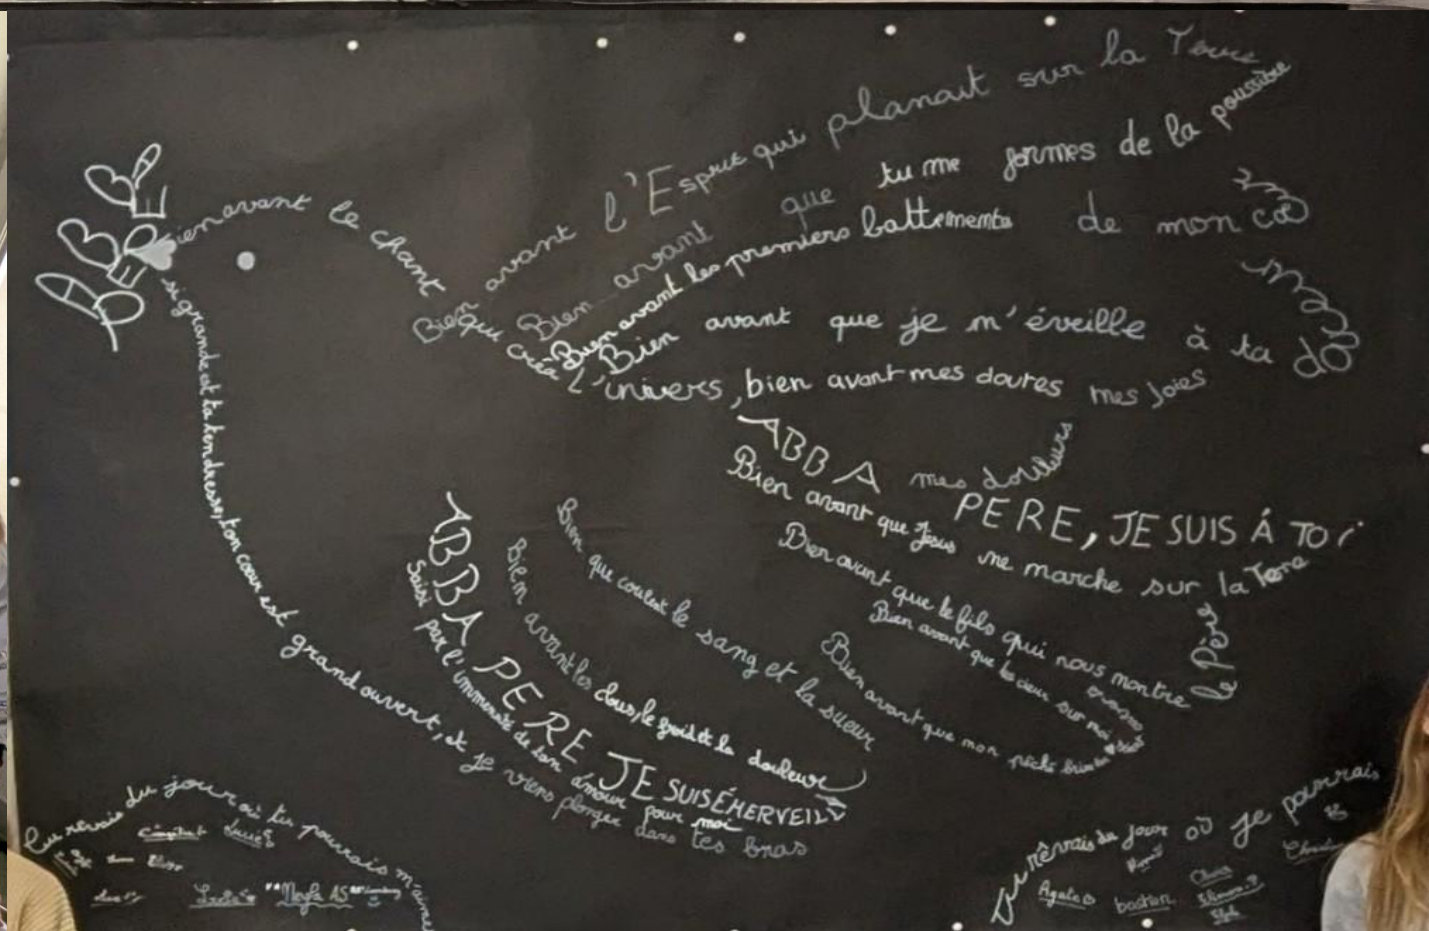 Bien avant le chant
qui créa l'univers, bien avant mes doutes mes joies
mes douleurs
Bien avant l'Esprit qui planait sur la Terre
Bien avant que tu me formes de la poussière
Bien avant les premiers battements de mon cœ
Bien avant que je m'éveille à ta do
ABBA PERE, JE SUIS Á TOI
Bien avant que Jésus ne marche sur la Terre
Bien avant que le fils qui nous montre le Père
Bien avant que les cieux sur moi
Bien avant que mon péché
Bien que coulent le sang et la sueur
Bien avant les clous, le froid et la douleur
ABBA PERE JE SUIS ÉMERVEILLÉ
Saisi par l'immensité de ton amour pour moi
si grande est ta tendresse, ton cœur est grand ouvert, et je viens plonger dans tes bras
Tu rêvais du jour où tu pourrais m'aimer
Tu rêvais du jour où je pourrais
Agate
bastien